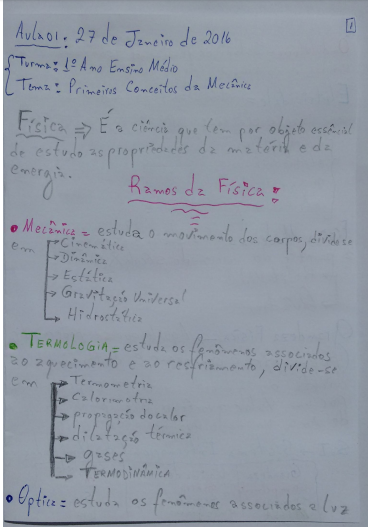 1
Aula 01: 27 de Janeiro de 2016
Turma: 1º Ano Ensino Médio
Tema: Primeiros Conceitos da Mecânica
Física => É a ciência que tem por objeto essencial
de estudo as propriedades da matéria e da
energia.
Ramos da Física:
• Mecânica = estuda o movimento dos corpos, divide se
em → Cinemática
→ Dinâmica
→ Estática
→ Gravitação Universal
→ Hidrostática
• TERMOLOGIA = estuda os fenômenos associados
ao aquecimento e ao resfriamento, divide-se
em → Termometria
→ Calorimetria
→ propagação do calor
→ dilatação térmica
→ gases
→ TERMODINÂMICA
• Optica = estuda os fenômenos associados a luz